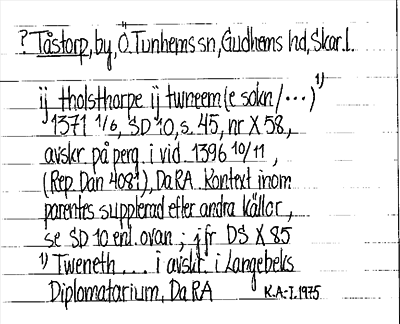 ? Tåstorp, by, Ö. Tunhems sn, Gudhems hd, Skar. l.
ij tholsthorpe ij twneem (e sokn/...) 1)
1371 1/6, SD 10, s. 45, nr X 58,
avskr. på perg. i vid. 1396 10/11,
(Rep. Dan 4081), DaRA. Kontext inom
parentes supplerad efter andra källor,
se SD 10 enl. ovan; jfr DS X 85
1) Tweneth ... i avskr. i Langebeks
Diplomatarium, DaRA K.A-I. 1975